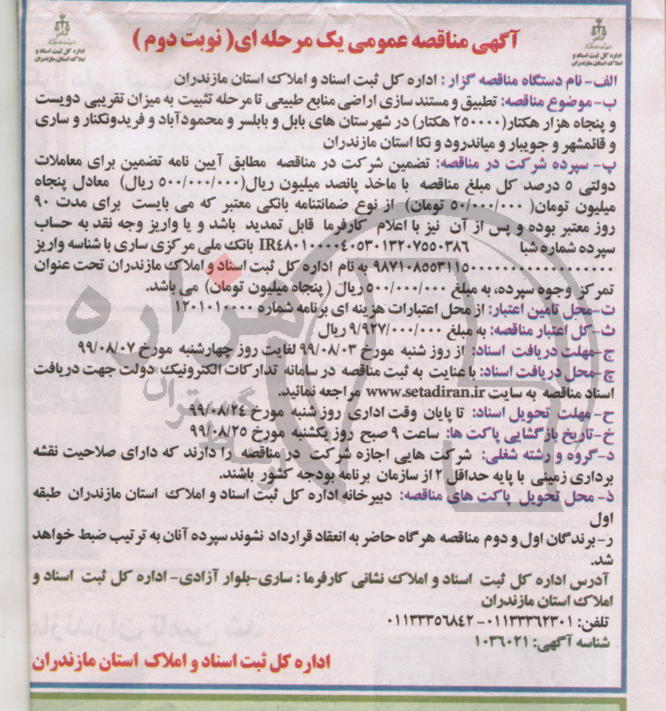 آگهی مناقصه عمومی یک مرحله ای( نوبت دوم )
اداره کل ثبت اسناد و
املاک استان مازندران
اداره کل ثبت اسناد و
املاک استان مازندران
الف- نام دستگاه مناقصه گزار : اداره کل ثبت اسناد و املاک استان مازندران
ب- موضوع مناقصه: تطبیق و مستند سازی اراضی منابع طبیعی تا مرحله تثبیت به میزان تقریبی دویست
و پنجاه هزار هکتار(۲۵۰۰۰۰ هکتار) در شهرستان های بابل و بابلسر و محمودآباد و فریدونکنار و ساری
و قائمشهر و جویبار و میاندرود و نکا استان مازندران
پ- سپرده شرکت در مناقصه: تضمین شرکت در مناقصه مطابق آیین نامه تضمین برای معاملات
دولتی ۵ درصد کل مبلغ مناقصه با ماخذ پانصد میلیون ریال(۵۰۰/۰۰۰/۰۰۰ ریال) معادل پنجاه
میلیون تومان( ۵۰/۰۰۰/۰۰۰ تومان) از نوع ضمانتنامه بانکی معتبر که می بایست برای مدت ۹۰
روز معتبر بوده و پس از آن نیز با اعلام کارفرما قابل تمدید باشد و یا واریز وجه نقد به حساب
سپرده شماره شبا IR۴۸۰۱۰۰۰۰۴۰۵۳۰۱۳۲۰۷۵۵۰۳۸۶ بانک ملی مرکزی ساری با شناسه واریز
۹۸۷۱۰۸۵۵۳۱۱۵۰۰۰۰۰۰۰۰۰۰۰۰۰۰۰۰۰۰ به نام اداره کل ثبت اسناد و املاک مازندران تحت عنوان
تمرکز وجوه سپرده، به مبلغ ۵۰۰/۰۰۰/۰۰۰ ریال ( پنجاه میلیون تومان) می باشد.
ت- محل تامین اعتبار: از محل اعتبارات هزینه ای برنامه شماره ۱۲۰۱۰۱۰۰۰۰
ث- کل اعتبار مناقصه: به مبلغ ۹/۹۲۷/۰۰۰/۰۰۰ ریال
ج- مهلت دریافت اسناد: از روز شنبه مورخ ۹۹/۰۸/۰۳ لغایت روز چهارشنبه مورخ ۹۹/۰۸/۰۷
چ- محل دریافت اسناد: با عنایت به ثبت مناقصه در سامانه تدارکات الکترونیک دولت جهت دریافت
اسناد مناقصه به سایت www.setadiran.ir مراجعه نمائید.
ح- مهلت تحویل اسناد: تا پایان وقت اداری روز شنبه مورخ ۹۹/۰۸/۲۴
خ- تاریخ بازگشایی پاکت ها: ساعت ۹ صبح روز یکشنبه مورخ ۹۹/۰۸/۲۵
د- گروه و رشته شغلی: شرکت هایی اجازه شرکت در مناقصه را دارند که دارای صلاحیت نقشه
برداری زمینی با پایه حداقل ۲ از سازمان برنامه بودجه کشور باشند.
ذ- محل تحویل پاکت های مناقصه: دبیرخانه اداره کل ثبت اسناد و املاک استان مازندران طبقه
اول
ر- برندگان اول و دوم مناقصه هرگاه حاضر به انعقاد قرارداد نشوند سپرده آنان به ترتیب ضبط خواهد
شد.
آدرس اداره کل ثبت اسناد و املاک نشانی کارفرما : ساری-بلوار آزادی- اداره کل ثبت اسناد و
املاک استان مازندران
تلفن: ۰۱۱۳۳۳۶۲۳۰۱-۰۱۱۳۳۳۵۶۸۴۲
شناسه آگهی: ۱۰۳۶۰۲۱
اداره کل ثبت اسناد و املاک استان مازندران